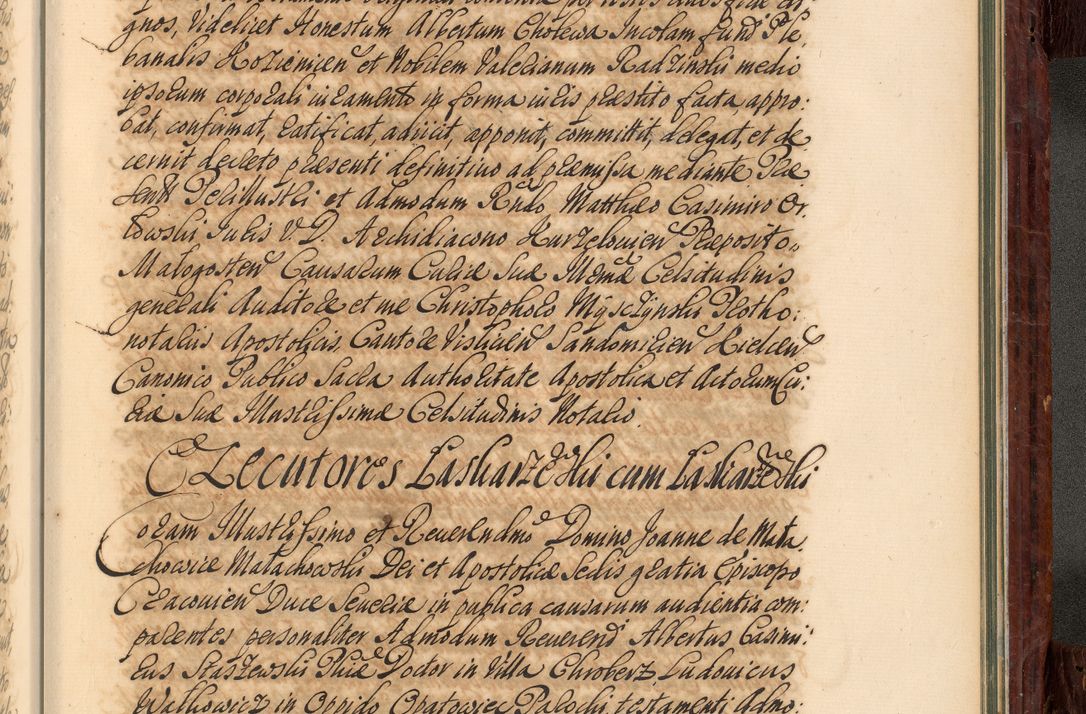 gnos, Videlicet Honestum Albertum Cholewa Incolam fundi Ple,
banalis Kozienicen et Nobilem Valerianum Radzinski medio
ipsorum corporali iuramento in forma iuris præstito facta, appro:
bat, confirmat, ratificat, adiicit, apponit, committit, delegat, et de
cernit decreto præsenti definitiuo ad præmissa mediante Præ
sentt Perillustri et Admodum Rndo Matthæo Casimiro Or,
łowski Iuris V. D. Archidiacono Kurzelouien Præposito
Małogosten Causarum Curiæ Suæ Illmæ Celsitudinis
generali Auditore et me Christophoro Mysczynski Protho:
notariis Apostolicis Cantore Visliciens Sandomirien Kielcen
Canonico Publico Sacra Authoritate Apostolica et Actorum Cu:
riæ Suæ Illustrissimæ Celsitudinis Notario.
Executores Laskarzewski cum Laskarzewski
Coram Illustrissimo et Reuerendmo Domino Joanne de Mała
chowice Małachowski Dei et Apostolicæ Sedis gratia Episcopo
Cracouien Duce Seueriæ in publica causarum audientia com:
parentes personaliter Admodum Reuerend Albertus Casimi:
rus Staszewski Phiæ Doctor in Villa Chroberz, Ludouicus
Walkowicz in Oppido Opatowiec Parochi, testamenti Admo: